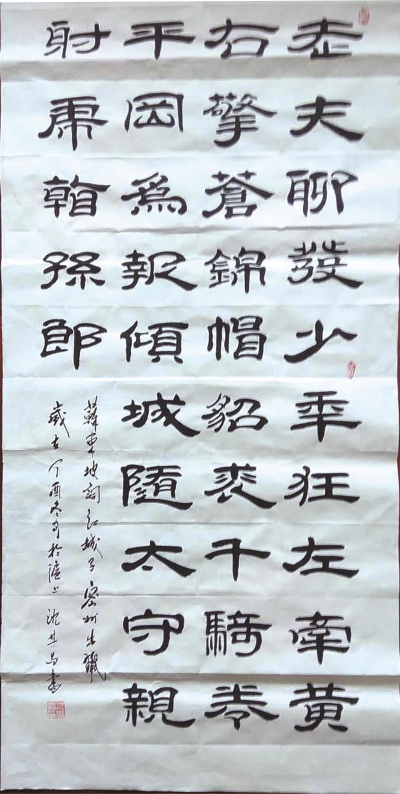 老夫聊發少年狂左牽黃
右擎蒼錦帽貂裘千騎卷
平岡爲報傾城隨太守親
射虎看孫郎
蘇東坡詞江城子密州出獵
歲在丁酉冬月於滬上沈其書